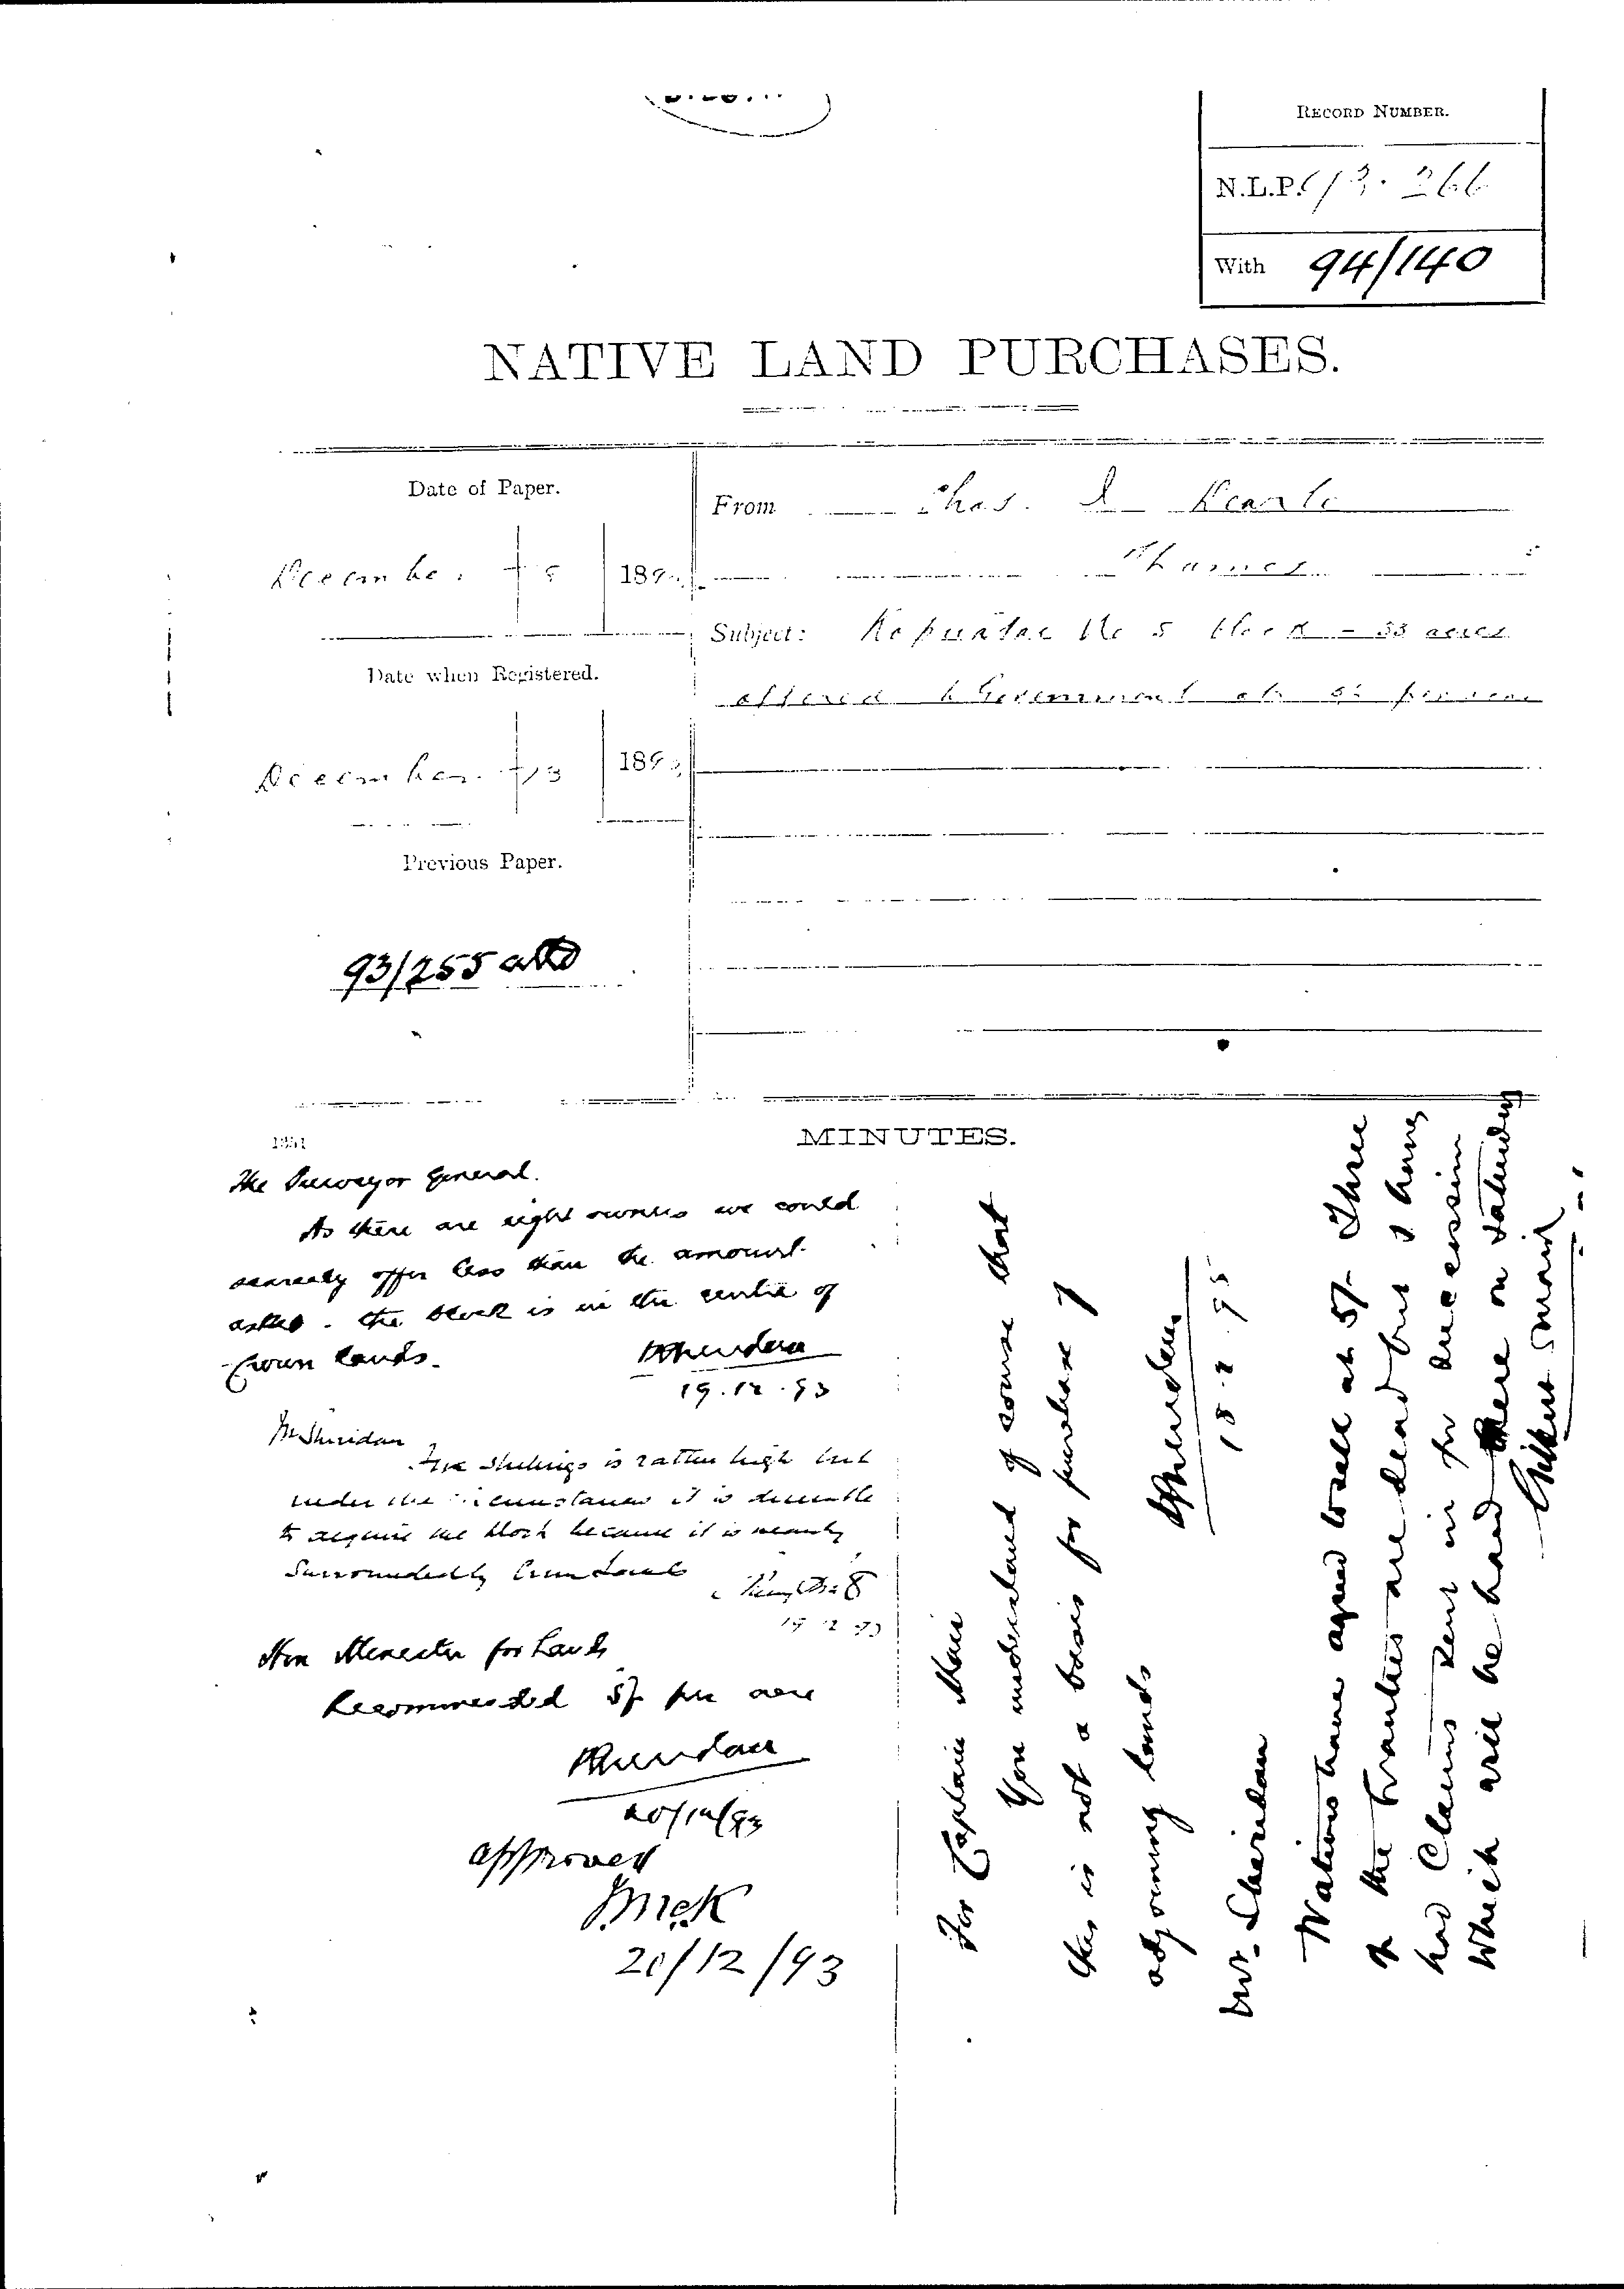 RECORD NUMBER.
N.L.P. 93. 266
With 94/140
NATIVE LAND PURCHASES.
Date of Paper.
December 5 189
From Chas.
Thames
Subject: No 5 block - 33 acres
offered to Government at 5/ per acre
Date when Registered.
December 13 189
Previous Paper.
93/255
MINUTES.
The Surveyor General.
As there are eight owners we could
scarcely offer less than the amount
asked. The block is in the centre of
Crown lands.
Sheridan
19.12.93
Mr Sheridan
Five Shillings is rather high but
under the circumstances it is desirable
to acquire the block because it is nearly
Surrounded by Crown Lands
19 12 93
Hon Minister for Lands
Recommended 5/- per acre
Sheridan
20/12/93
Approved
JMcK
20/12/93
For Captain Mair
You understand of course that
this is not a basis for purchase of
adjoining lands
Sheridan
Mr. Sheridan
Natives have agreed to sell at 5/- Three
of the Grantees are dead but I have
had Claims sent in for succession
which will be heard here on Saturday
Gilbert Mair